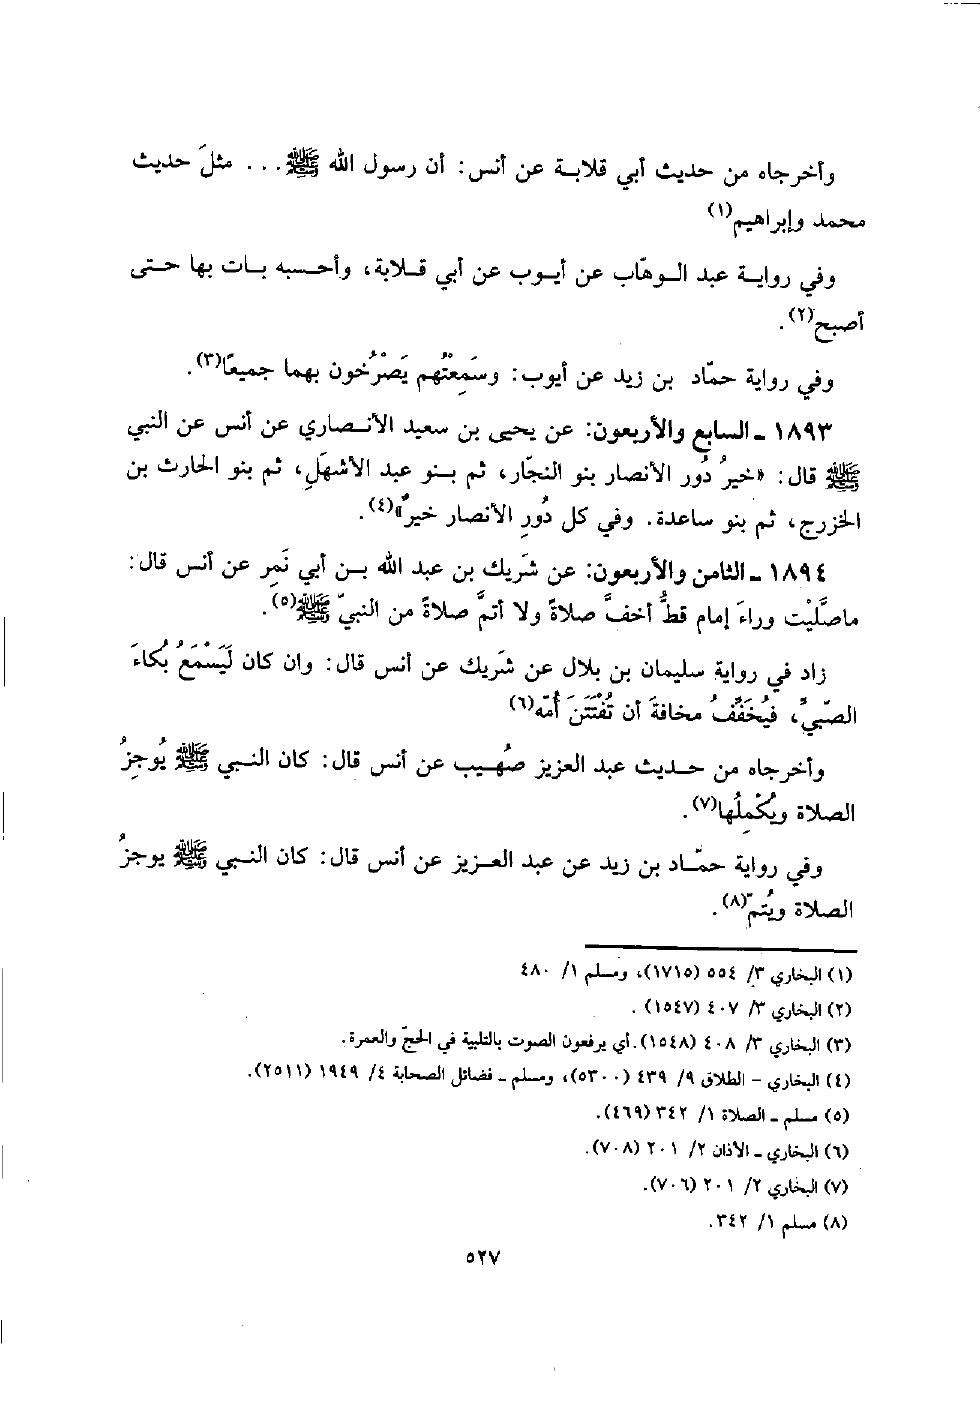 وأخرجاه من حديث أبي قلابـة عن أنس: أن رسول الله ﷺ... مثلَ حديث
محمد وإبراهيم(١)
وفي روايـة عبد الـوهّاب عن أيـوب عن أبي قـلابة، وأحـسبه بـات بها حتـى
أصبح(٢).
وفي رواية حمّاد بن زيد عن أيوب: وسَمِعْتُهم يَصْرُخون بهما جميعًا(٣).
١٨٩٣ ـ السابع والأربعون: عن يحيى بن سعيد الأنـصاري عن أنس عن النبي
ﷺ قال: «خيرُ دُور الأنصار بنو النجّار، ثم بـنو عبد الأشهَلِ، ثم بنو الحارث بن
الخزرج، ثم بنو ساعدة. وفي كل دُورِ الأنصار خيرٌ»(٤).
١٨٩٤ ـ الثامن والأربعون: عن شَريك بن عبد الله بـن أبي نَمِر عن أنس قال:
ماصلَّيت وراءَ إمام قطُّ أخفَّ صلاةً ولا أتمَّ صلاةً من النبيّ ﷺ(٥).
زاد في رواية سليمان بن بلال عن شَريك عن أنس قال: وان كان لَيَسْمَعُ بُكاءَ
الصّبيِّ، فيُخَفِّفُ مخافةَ أن تُفْتَتَنَ أُمّه(٦)
وأخرجاه من حـديث عبد العزيز صُهيب عن أنس قال: كان النـبي ﷺ يُوجِزُ
الصلاة ويُكْمِلُها(٧).
وفي رواية حمّـاد بن زيد عن عبد العـزيز عن أنس قال: كان النـبي ﷺ يوجزُ
الصلاة ويُتمّ(٨).
(١) البخاري ٣/ ٥٥٤ (١٧١٥)، ومسلم ١/ ٤٨٠
(٢) البخاري ٣/ ٤٠٧ (١٥٤٧) .
(٣) البخاري ٣/ ٤٠٨ (١٥٤٨). أي يرفعون الصوت بالتلبية في الحجّ والعمرة.
(٤) البخاري – الطلاق ٩/ ٤٣٩ (٥٣٠٠)، ومسلم ـ فضائل الصحابة ٤/ ١٩٤٩ (٢٥١١).
(٥) مسلم ـ الصلاة ١/ ٣٤٢ (٤٦٩).
(٦) البخاري ـ الأذان ٢/ ٢٠١ (٧٠٨).
(٧) البخاري ٢/ ٢٠١ (٧٠٦).
(٨) مسلم ١/ ٣٤٢.
٥٢٧